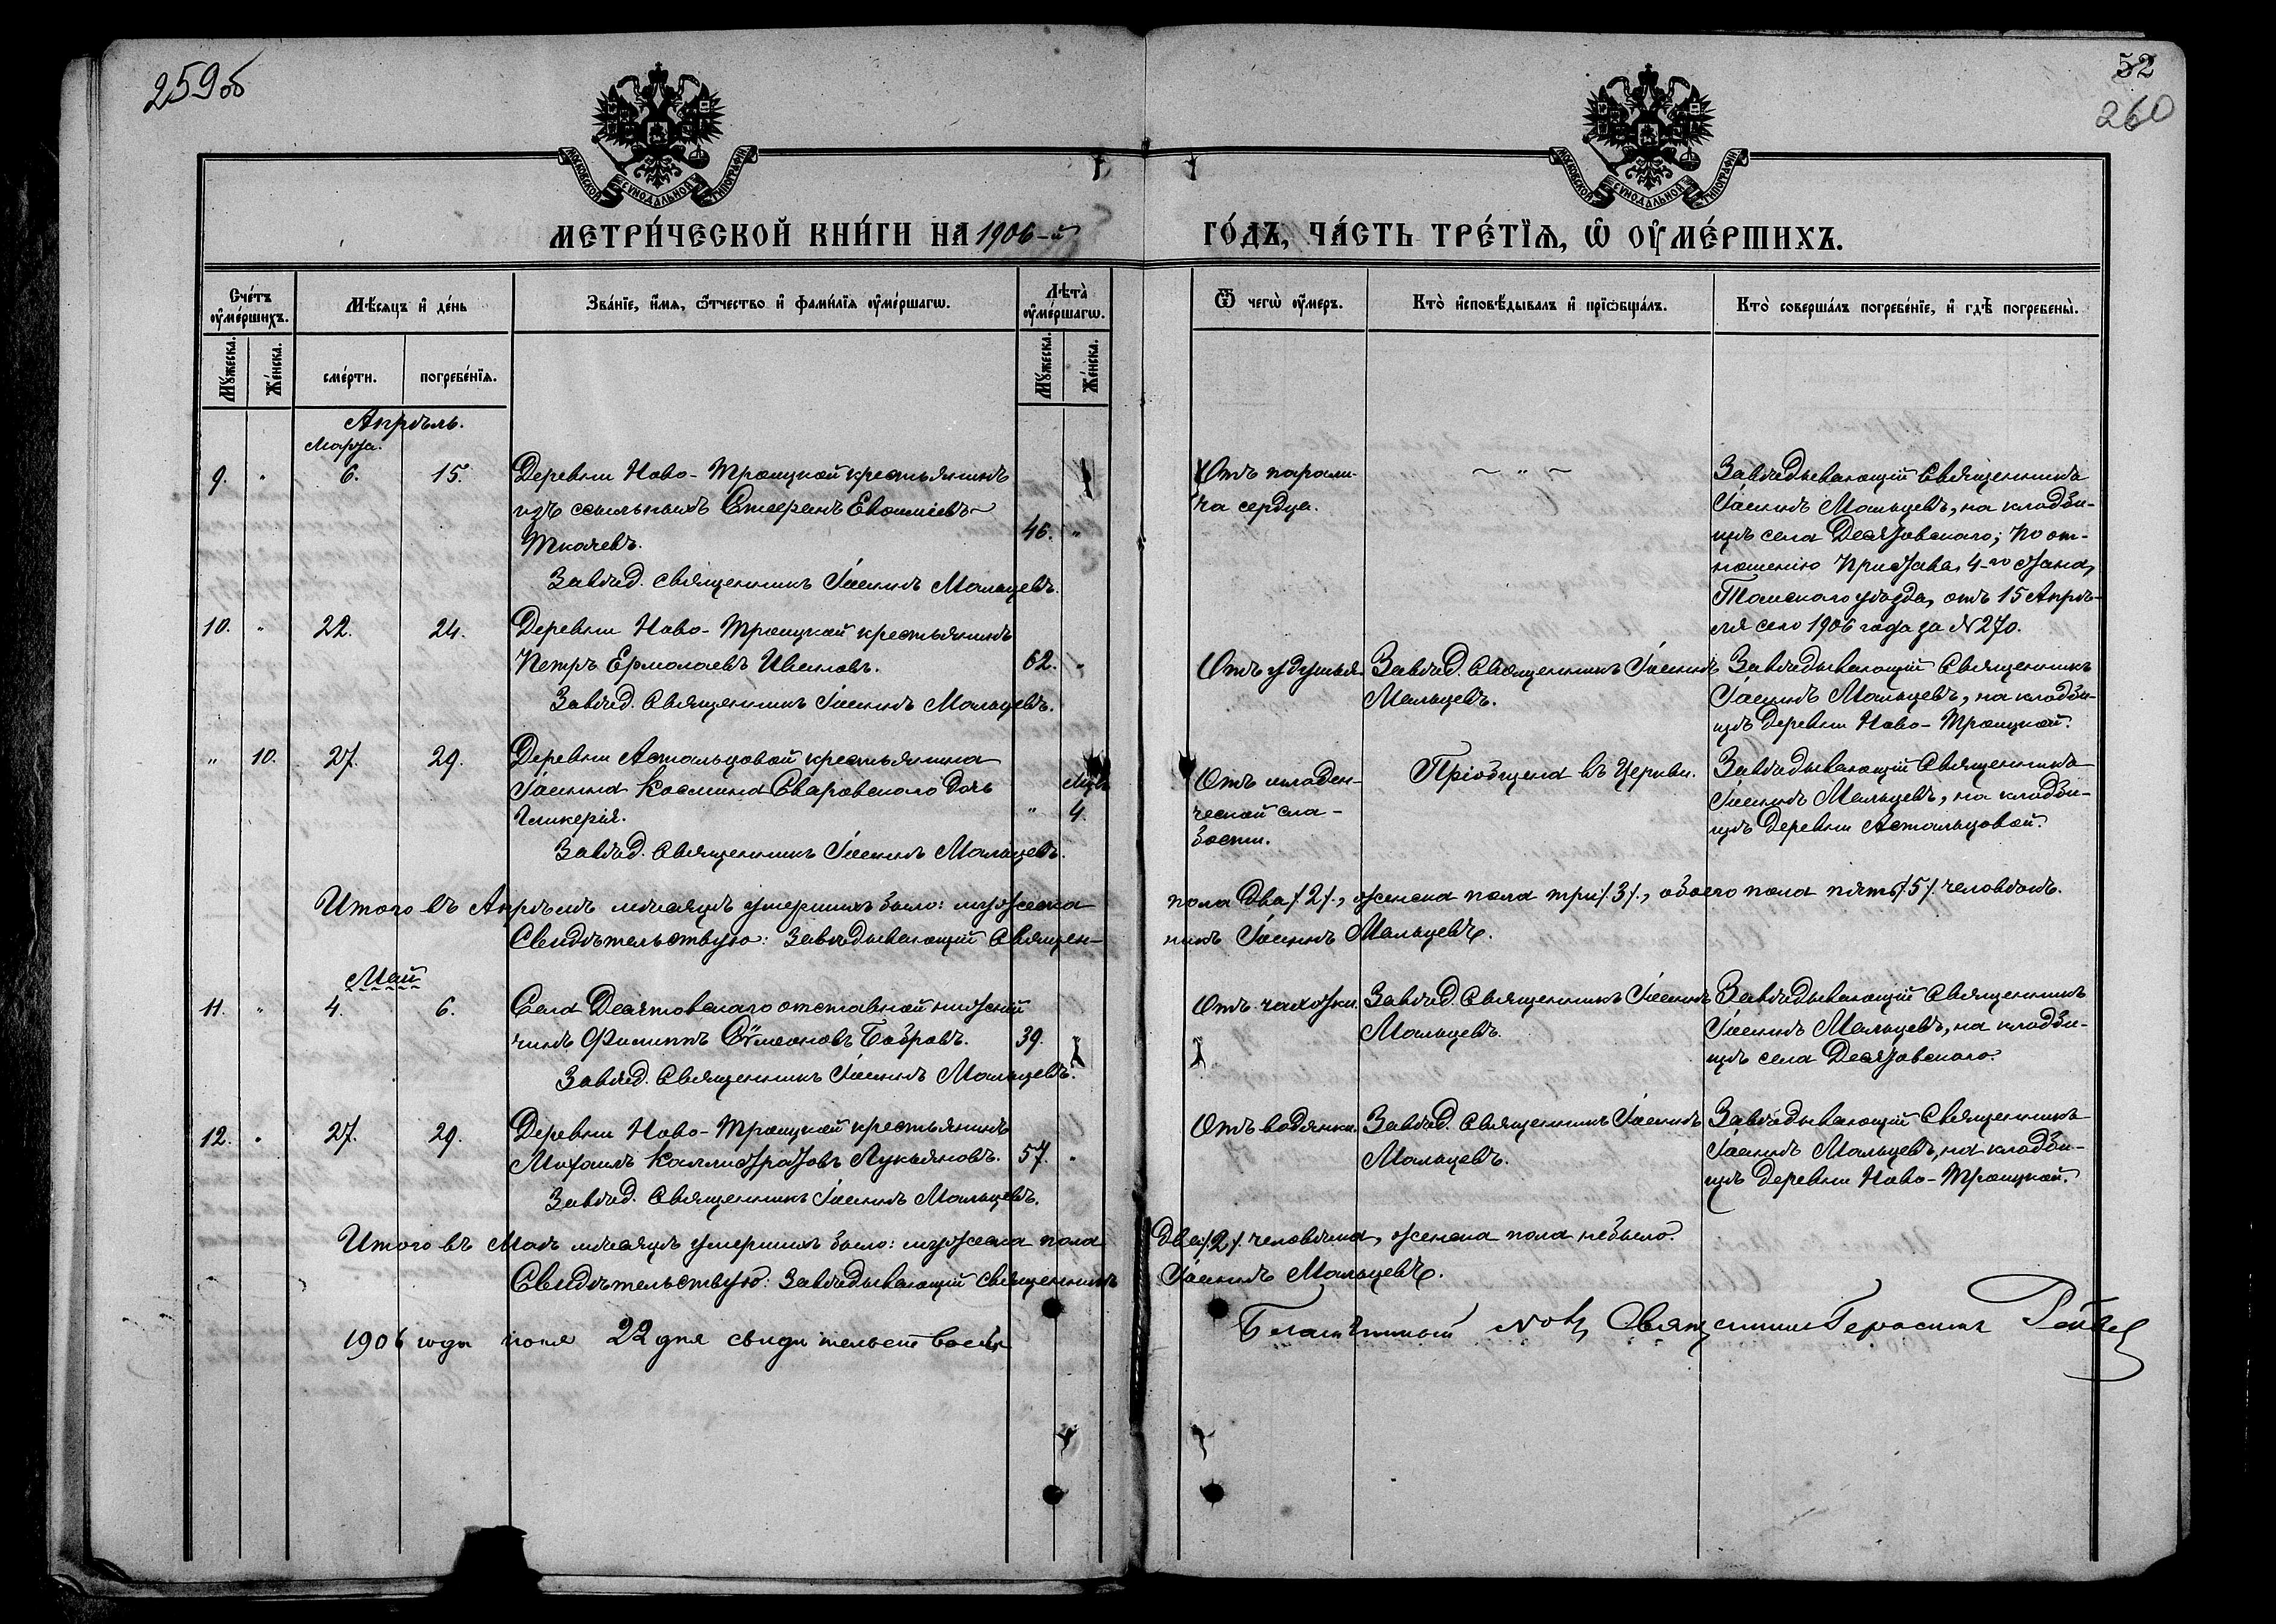 259об
52
260
МОСКОВСКОЙ СѴНОДАЛЬНОЙ ТИПОГРАФІИ
МОСКОВСКОЙ СѴНОДАЛЬНОЙ ТИПОГРАФІИ
МЕТРИ́ЧЕСКОЙ КНИ́ГИ НА 1906-й
ГО́ДЪ, ЧА́СТЬ ТРЕ́ТІѦ, Ѡ ОУ҆МЕ́РШИХЪ.
Сче́тъ оу҆ме́ршихъ.
Мѣ́сяцъ и҆ де́нь
Зва́ніе, и҆́мя, ѻ҆́тчество и҆ фами́лія оу҆ме́ршагѡ.
Лѣта̀ оу҆ме́ршагѡ.
Ѿ чегѡ̀ оу҆́меръ.
Кто̀ и҆сповѣ́дывалъ и҆ прїѡбща́лъ.
Кто̀ соверша́лъ погребе́ніе, и҆ гдѣ̀ погребены̀.
Мꙋ́жеска.
Же́нска.
сме́рти.
погребе́нїя.
Мꙋ́жеска.
Же́нска.
Апрѣль.
Марта.
9. " 6. 15. Деревни Ново-Троицкой крестьянинъ
изъ ссыльныхъ Стефанъ Евѳиміевъ
Ткачевъ. 46. "
Завѣд. священникъ Іоаннъ Мальцевъ.
Отъ парали-
ча сердца.
~ " ~
Завѣдывающій Священникъ
Іоаннъ Мальцевъ, на кладби-
щѣ села Десятовскаго; по от-
ношенію Пристава 4-го стана,
Томскаго уѣзда, отъ 15 Апрѣ-
ля сего 1906 года за №270.
10. " 22. 24. Деревни Ново-Троицкой крестьянинъ
Петръ Ермолаевъ Ивановъ. 62. "
Завѣд. Священникъ Іоаннъ Мальцевъ.
Отъ удушья.
Завѣд. Священникъ Іоаннъ
Мальцевъ.
Завѣдывающій Священникъ
Іоаннъ Мальцевъ, на кладби-
щѣ деревни Ново-Троицкой.
" 10. 27. 29. Деревни Астальцовой крестьянина
Іоанна Космина Сваровскаго дочь
Гликерія. " 4.
Завѣд. Священникъ Іоаннъ Мальцевъ.
Отъ младен-
ческой сла-
бости.
Пріобщена въ Церкви.
Завѣдывающій Священникъ
Іоаннъ Мальцевъ, на кладби-
щѣ деревни Астальцовой.
Итого въ Апрѣлѣ мѣсяцѣ умершихъ было: мужеска
пола два /.2/., женска пола три /.3/., обоего пола пять /.5/. человѣкъ.
Свидѣтельствую: Завѣдывающій Священ-
никъ Іоаннъ Мальцевъ.
Май
11. " 4. 6. Села Десятовскаго отставной нижній
чинъ Филиппъ Сѵмеоновъ Бобровъ. 39.
Завѣд. Священникъ Іоаннъ Мальцевъ.
Отъ чахотки.
Завѣд. Священникъ Іоаннъ
Мальцевъ.
Завѣдывающій Священникъ
Іоаннъ Мальцевъ, на кладби-
щѣ села Десятовскаго.
12. " 27. 29. Деревни Ново-Троицкой крестьянинъ
Михаилъ Каллистратовъ Лукьяновъ. 57. "
Завѣд. Священникъ Іоаннъ Мальцевъ.
Отъ водянки.
Завѣд. Священникъ Іоаннъ
Мальцевъ.
Завѣдывающій Священникъ
Іоаннъ Мальцевъ, на кладби-
щѣ деревни Ново-Троицкой.
Итого въ Маѣ мѣсяцѣ умершихъ было: мужеска пола
два /.2/. человѣка, женска пола небыло.
Свидѣтельствую: Завѣдывающій священникъ
Іоаннъ Мальцевъ.
1906 года 22 дня
Благочинный Священникъ Герасимъ